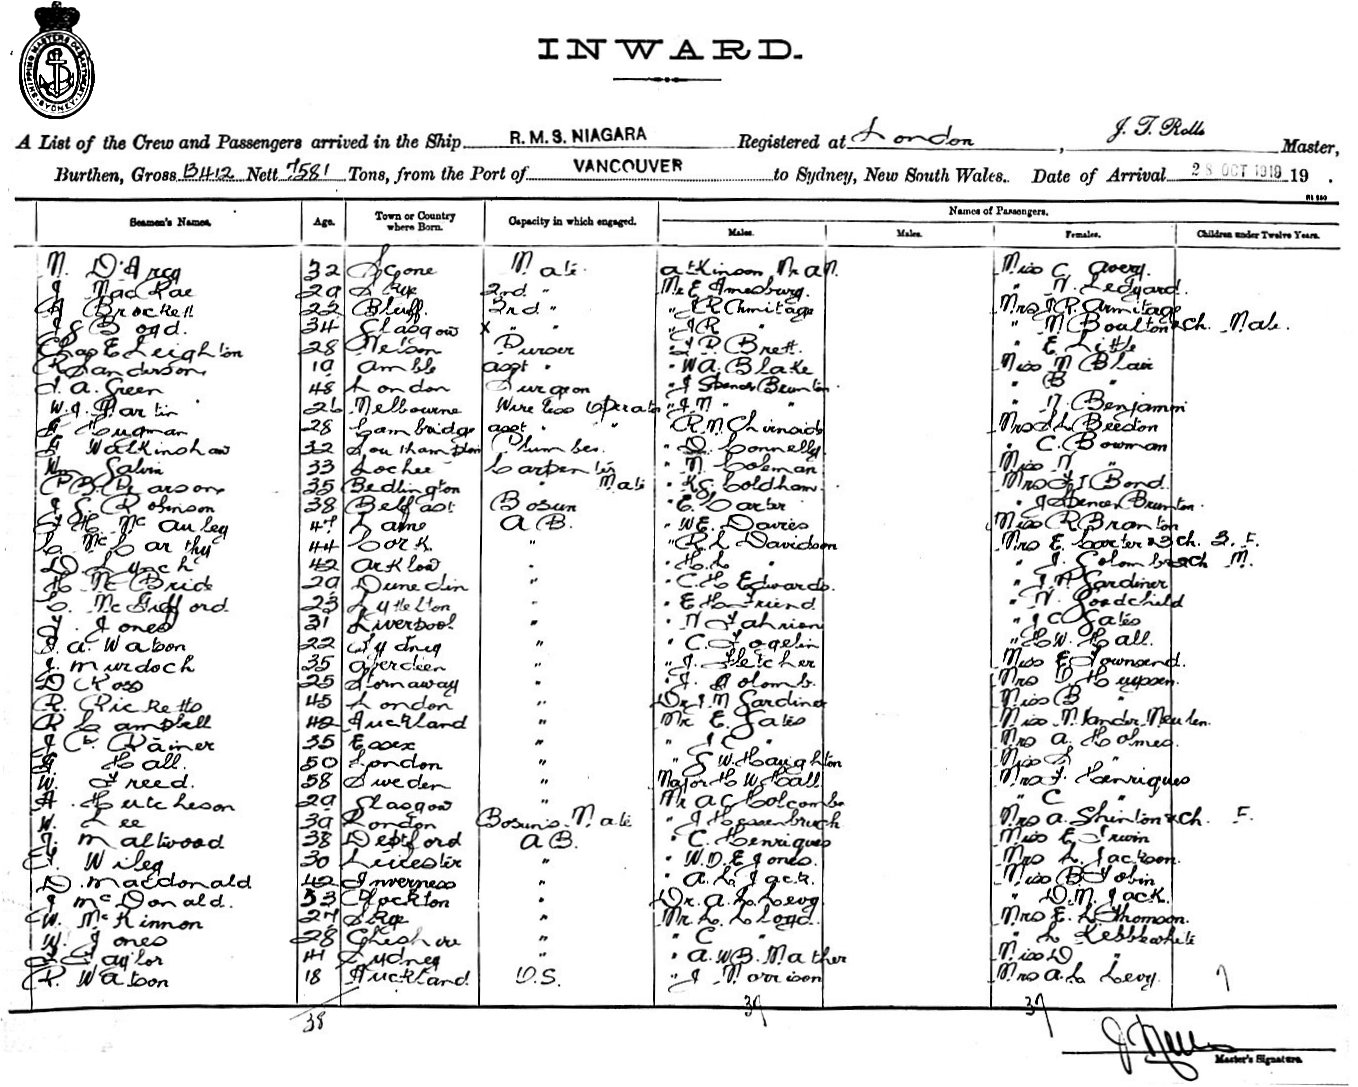 SHIPPING MASTER'S DEPARTMENT
SYDNEY
INWARD.
A List of the Crew and Passengers arrived in the Ship R.M.S. NIAGARA Registered at London, J. T. Rolls Master,
Burthen, Gross 13412 Nett 7581 Tons, from the Port of VANCOUVER to Sydney, New South Wales. Date of Arrival 28 OCT 1919 19 .
Seamen's Names. Age. Town or Country where Born. Capacity in which engaged. Names of Passengers.
Males. Males. Females. Children under Twelve Years.
N. D'Arcy 32 Scone Mate Atkinson Mr A N. Miss C Avery.
J MacRae 29 Skye 2nd " Mr E Amesbury. " N. Ledgard.
A Brockett 22 Bluff. 3rd " " J R Armitage Mrs J R Armitage
J G Boyd. 34 Glasgow x " " " J R " " M Boulton & ch. Male.
Chas E Leighton 28 Nelson Purser " J P Brett. " E Little
R Sanderson 19 Amble asst " " W A. Blake Miss M Blair
J. A. Green 48 London Surgeon " J Spencer Brunton. " B "
W. J. Martin 26 Melbourne Wireless Operator " J M " " " N. Benjamin
Hugman 28 Cambridge asst " " R. M. Chirnside Mrs S L Beeston
G Walkinshaw 32 Southampton Plumber. " D. Connelly. " C. Bowman
Wm Galvin 33 Lochee Carpenter " N Coleman Miss N "
P B Pearson 35 Bedlington " Mate " K G Coldham. Mrs F J Bond.
J G Robinson 38 Belfast Bosun " E. Carter " J Spencer Brunton.
H. McAuley 47 Larne A B. " W E. Davies Miss R Bramton
C. McCarthy 44 Cork " " R L Davidson Mrs E Carter & 3 ch. 3. F.
D Lynch 42 Arklow " " H. L " " J. Golomb & ch M.
H McBride 29 Dunedin " " C. H Edwards. " J. M Gardiner
C. McGifford 23 Lyttelton " " E H Friend " N. Goodchild
J Jones 31 Liverpool " " N Fahrion " J C Gates
J. A. Watson 22 Sydney " " C. Fogelin " H W. Hall.
J. Murdoch 35 Aberdeen " " J. Fletcher Miss E Townsend.
D Ross 25 Stornaway " " J. Golomb. Mrs D. Huysen.
R. Ricketts 45 London " Dr J. M Gardiner Miss B "
R Campbell 42 Auckland " Mr E. Gates Miss M. Vander Meulen.
J C Rainer 35 Essex " " J C " Mrs A. Holmes.
G Hall. 50 London " " G W. Haughton Miss L "
W. Freed. 58 Sweden " Major H W Hall Mrs F. Henriques
A. Hutcheson 29 Glasgow " Mr A C Holcombe " C "
W. Lee 39 London Bosun's Mate " J Hessenbruch Mrs A. Shinton & ch. F.
F. Maltwood 38 Deptford A B. " C. Henriques Miss E Irwin
C. Wiley 30 Leicester " " W. D. E Jones. Mrs L. Jackson.
D. Macdonald 42 Inverness " " A. L. Jack. Miss B Tobin
J McDonald. 53 Plockton " Dr. A. L. Levy " D. M. Jack.
W. McKinnon 27 Skye " Mr. L. Lloyd. Mrs E. L. Thomson.
W. Jones 28 Cheshire " " C " " L. Kebblewhite
Taylor 41 Sydney " " A. W B. Mather Miss D "
R. Watson 18 Auckland. O.S. " J Morrison Mrs A. L. Levy. 7
38 37 37
Master's Signature.